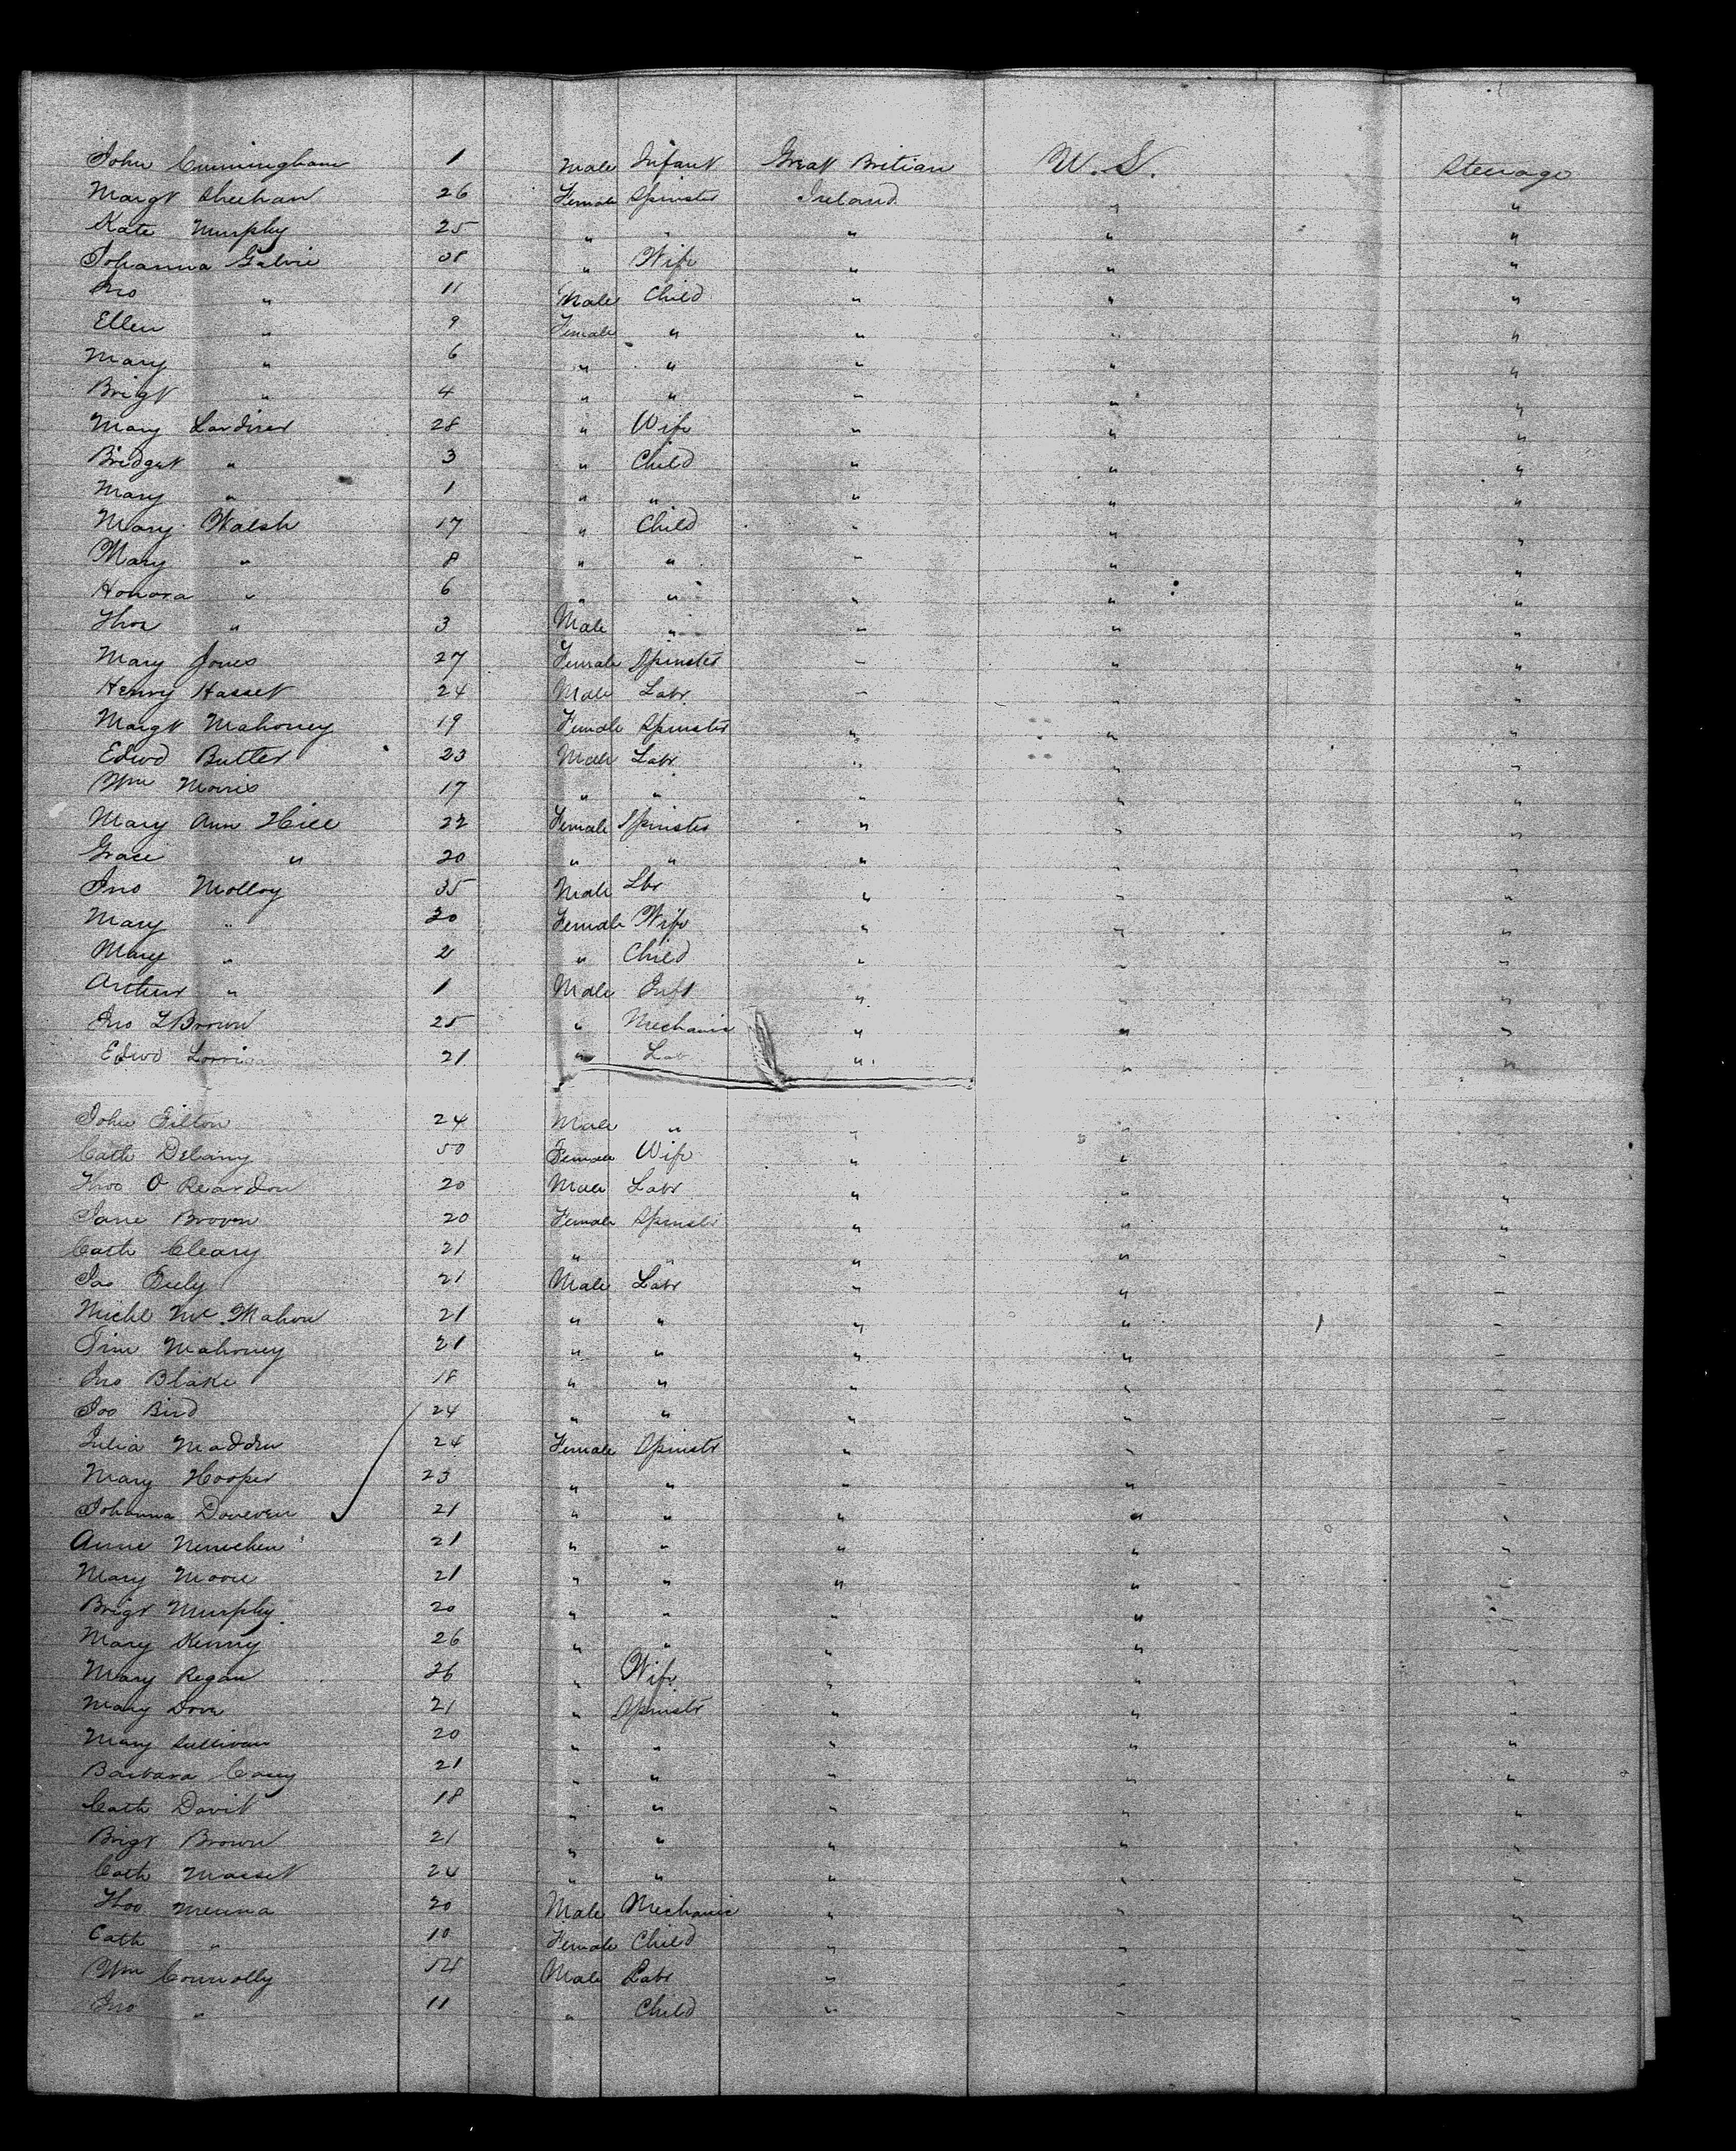 John Cunningham 1 Male Infant Great Britian U.S. Steerage
Margt Sheehan 26 Female Spinster Ireland " "
Kate Murphy 25 " " " " "
Johanna Galvie 38 " Wife " " "
Jno " 11 Male Child " " "
Ellen " 9 Female " " " "
Mary " 6 " " " " "
Brigt " 4 " " " " "
Mary Lardner 28 " Wife " " "
Bridget " 3 " Child " " "
Mary " 1 " " " " "
Mary Walsh 17 " Child " " "
Mary " 8 " " " " "
Honora " 6 " " " " "
Thos " 3 Male " " " "
Mary Jones 27 Female Spinster " " "
Henry Hasset 24 Male Labr " " "
Margt Mahoney 19 Female Spinster " " "
Edwd Butler 23 Male Labr " " "
Wm Morris 17 " " " " "
Mary Ann Hill 22 Female Spinster " " "
Grace " 20 " " " " "
Jno Molloy 35 Male Lbr " " "
Mary " 30 Female Wife " " "
Mary " 2 " Child " " "
Arthur " 1 Male Inft " " "
Jno Brown 25 " Mechanic " " "
Edwd 21 " Lab " " "
John Tilton 24 Male " " "
Cath Delany 50 Female Wife " " "
Thos O Reardon 20 Male Labr " " "
Jane Brown 20 Female Spinstr " " "
Cath Cleary 21 " " " " "
Jas 21 Male Labr " " "
Michl Mc Mahon 21 " " " " "
Tim Mahoney 21 " " " " "
Jno Blake 18 " " " " "
Jos Bird 24 " " " " "
Julia Madden 24 Female Spinstr " " "
Mary Hooper 23 " " " " "
Johanna Doneven 21 " " " " "
Anne 21 " " " " "
Mary Moore 21 " " " " "
Brigt Murphy 20 " " " " "
Mary Kenny 26 " " " " "
Mary Regan 26 " Wife " " "
Mary Dove 21 " Spinstr " " "
Mary Sullivan 20 " " " " "
Barbara Casey 21 " " " " "
Cath Davit 18 " " " " "
Brigt Brown 21 " " " " "
Cath Masset 24 " " " " "
Thos 20 Male Mechanic " " "
Cath " 10 Female Child " " "
Wm Connolly Male Labr " " "
Jno " 11 " Child " " "